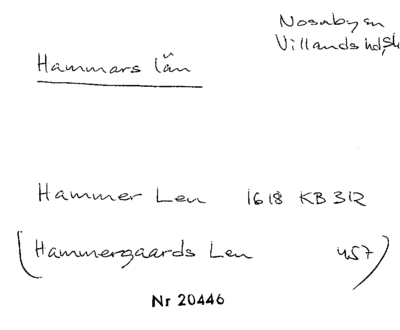 Nosaby sn
Villands hd, Sk
Hammars län
Hammer Len 1618 KB 312
(Hammergaards Len 457)
Nr 20446